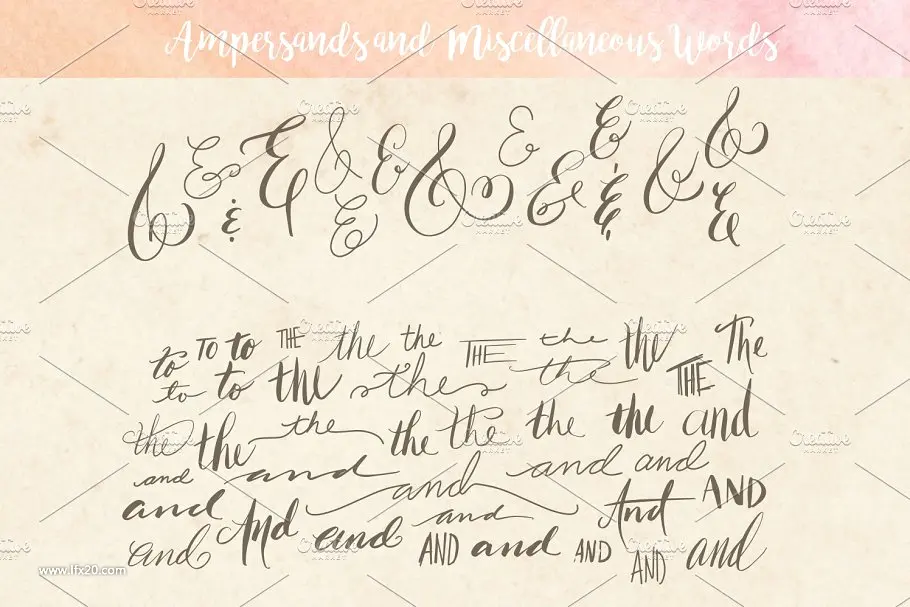 Ampersands and Miscellaneous Words
& & & & & & & & & & & & & & &
to TO to THE the the THE the the The
to to the the the THE
the the the the the the the the and
and and and and and
and And and and And AND
and AND and AND AND and
www.lfx20.com
Creative Market